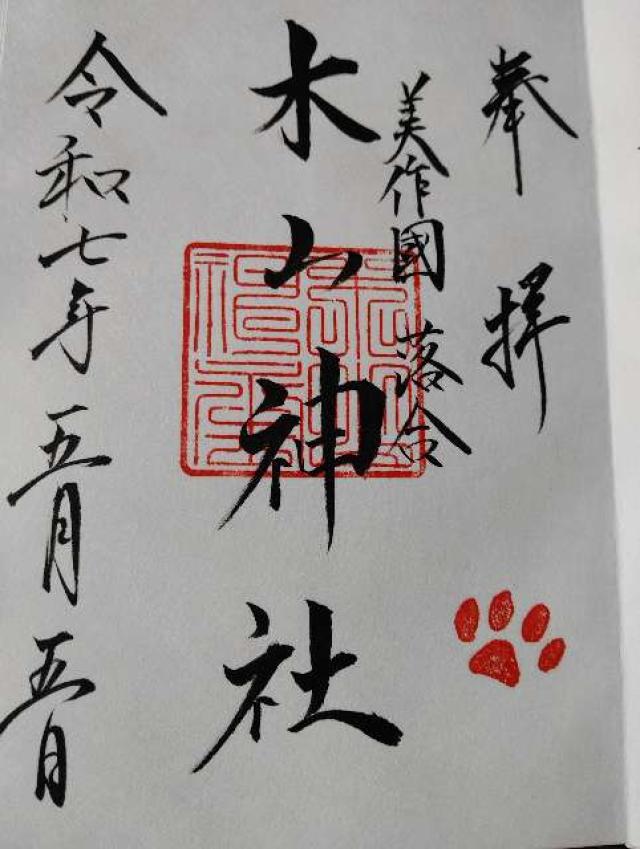 奉拝
美作國 落合
木山神社
令和七年五月五日